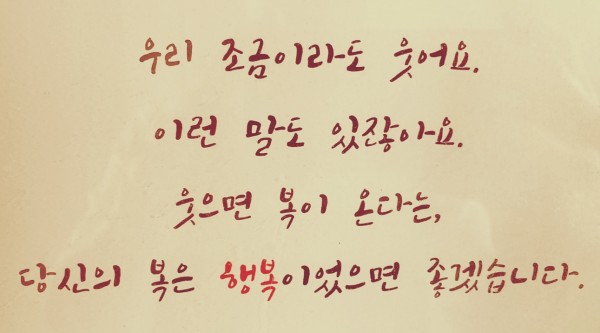 우리 조금이라도 웃어요.
이런 말도 있잖아요.
웃으면 복이 온다는,
당신의 복은 행복이었으면 좋겠습니다.